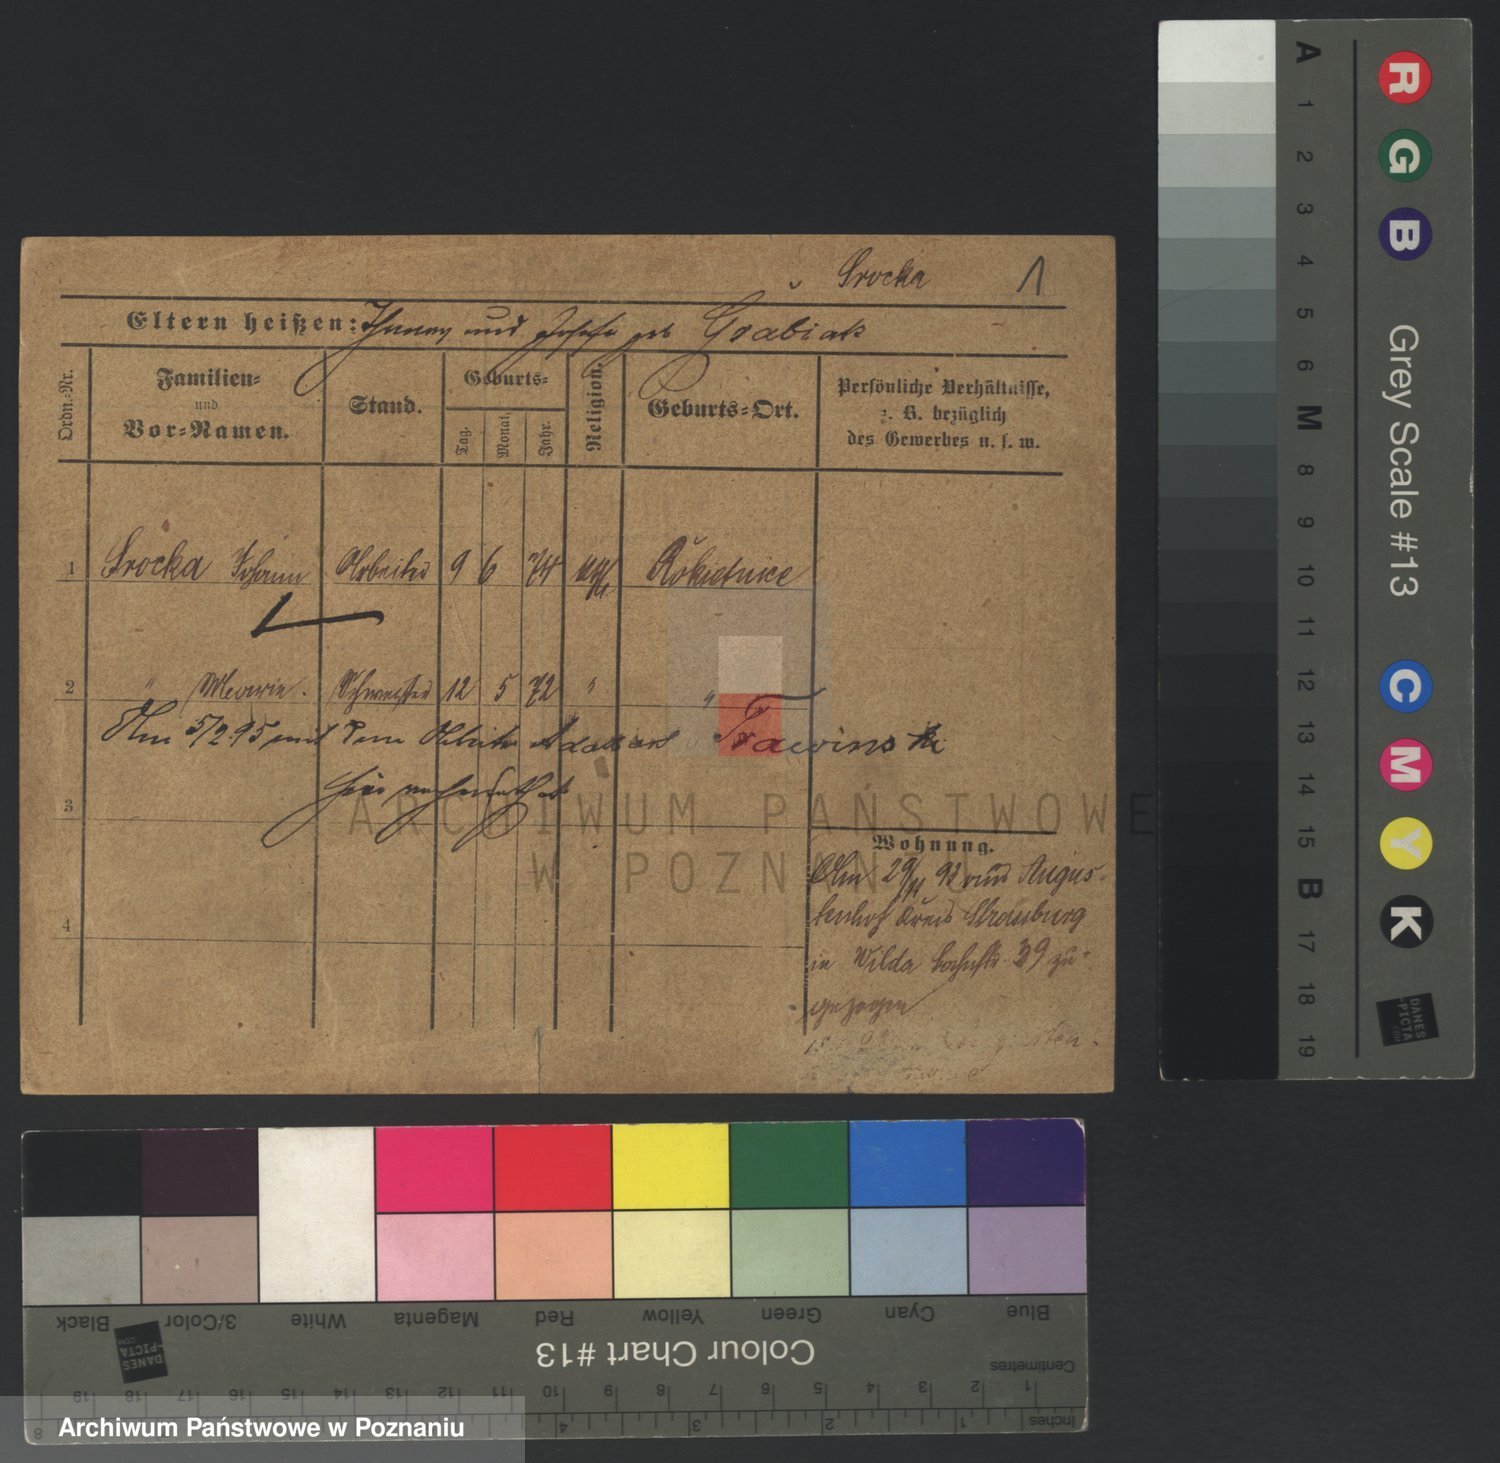 Srocka 1
Eltern heißen: und geb Grabiak
Ordn.-Nr.
Familien-
und
Vor-Namen.
Stand.
Geburts-
Tag.
Monat.
Jahr.
Religion.
Geburts-Ort.
Persönliche Verhältnisse,
z. B. bezüglich
des Gewerbes u. s. w.
1 Srocka Johann Arbeiter 9 6 74 Rokietnice
2 " Marie. Schwester 12 5 72 " "
Am 5/2 95 mit dem Arbeiter
hier verheirathet
3
4
Wohnung.
Am 29/11 92 aus Augus-
tenhof Kreis Strasburg
in Wilda 39 zu-
gezogen
ARCHIWUM PAŃSTWOWE
W POZNANIU
A 1 2 3 4 5 6 M 8 9 10 11 12 13 14 15 B 17 18 19
R G B
Grey Scale #13
C M Y K
DANES
-PICTA
.COM
Black 3/Color White Magenta Red Yellow Green Cyan Blue
Colour Chart #13
DANES
-PICTA
.COM
Centimetres
1 2 3 4 5 6 7 8 9 10 11 12 13 14 15 16 17 18 19
Inches 1 2 3 4 8
Archiwum Państwowe w Poznaniu